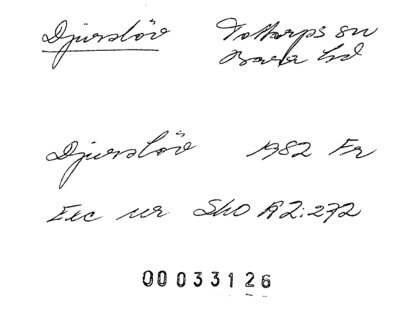 Djurslöv Tottarps sn
Bara hd
Djurslöv 1982 Fr
Exc ur SkO A2:272
00033126